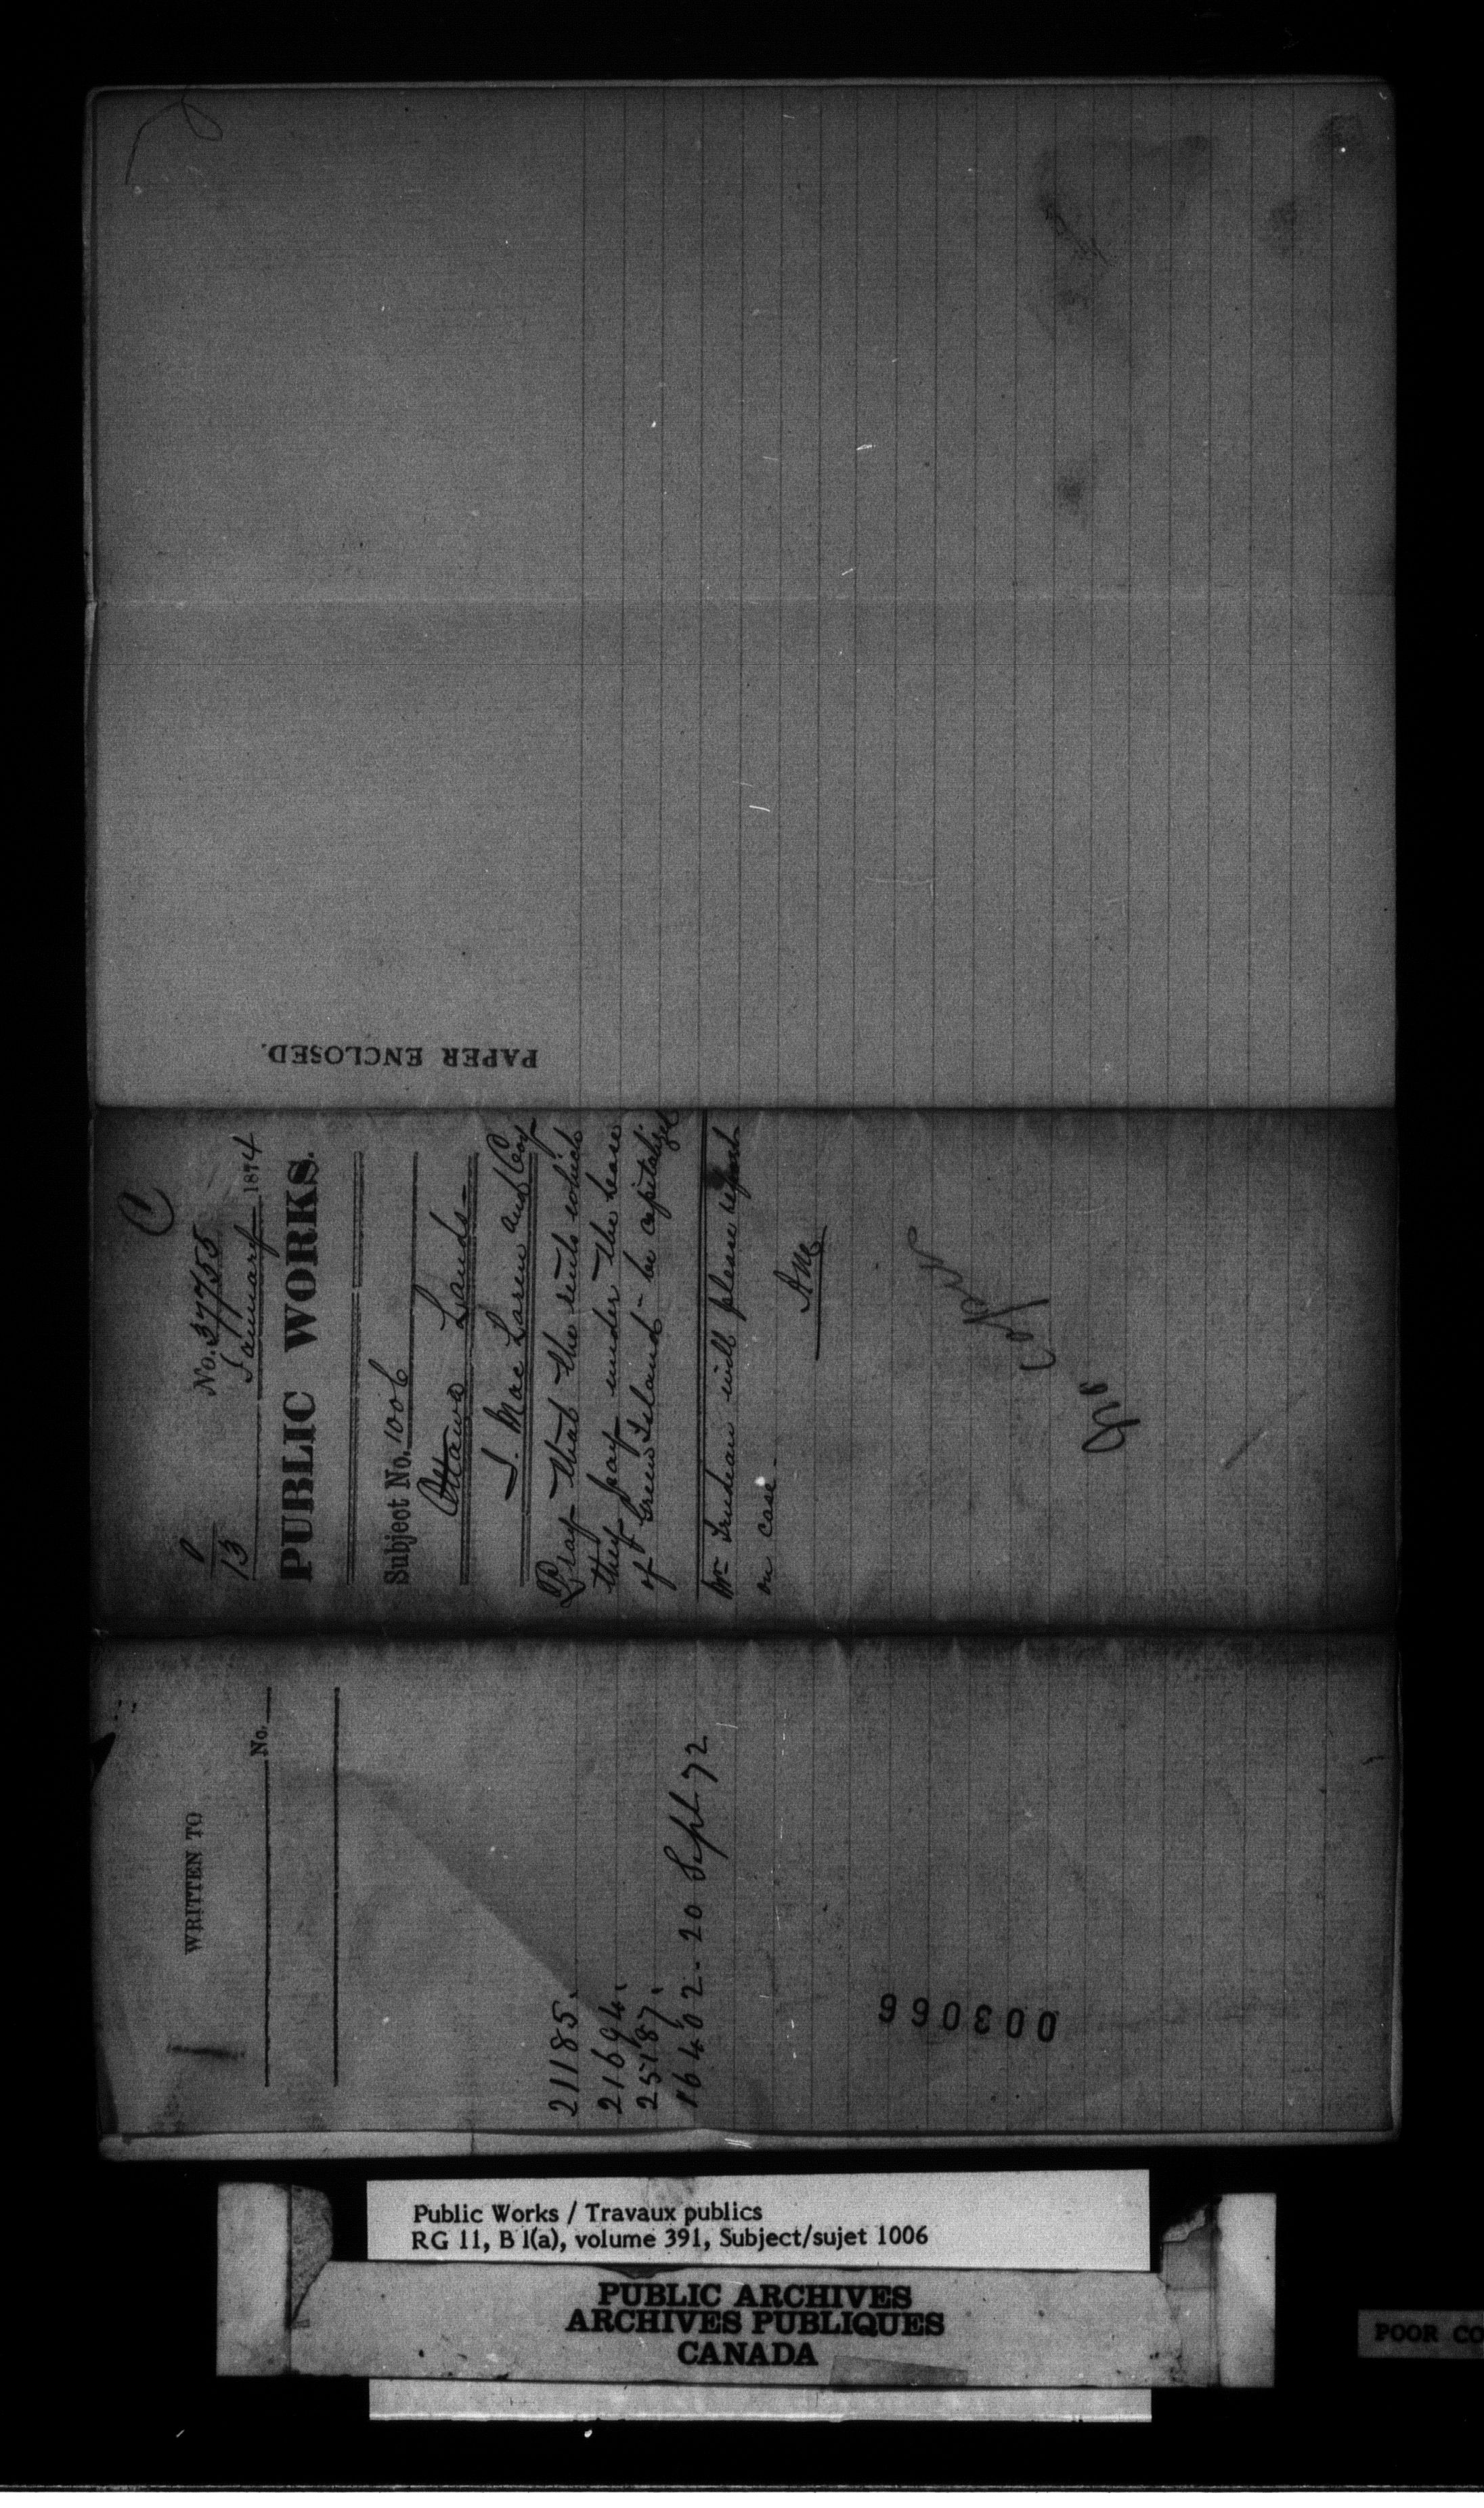 PAPER ENCLOSED.
C
No. 37755
13 January 1874
PUBLIC WORKS.
Subject No. 1006
Ottawa Lands
J. MacLaren and Coy
Pray that the rents which
they pay under the lease
of Green Island - be capitalized
Mr Trudeau will please report
on case.
AM
WRITTEN TO
No.
21185.
21694.
25187.
16402 - 20 Sept. 72
003066
Public Works / Travaux publics
RG 11, B 1(a), volume 391, Subject/sujet 1006
PUBLIC ARCHIVES
ARCHIVES PUBLIQUES
CANADA
POOR CO